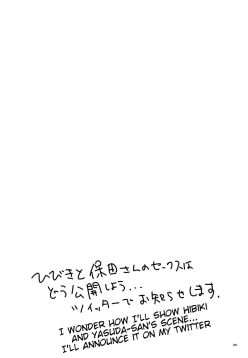 ひびきと保田さんのセックスは
どう公開しよう...
ツイッターでお知らせします.
I WONDER HOW I'LL SHOW HIBIKI
AND YASUDA-SAN'S SCENE...
I'LL ANNOUNCE IT ON MY TWITTER